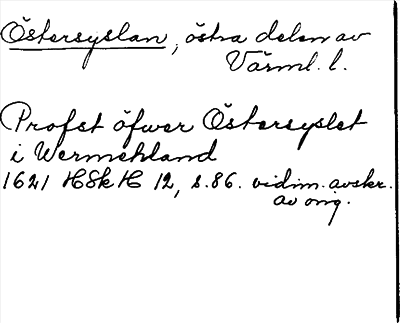 Östersyslan, östra delen av
Värml. l.
Profst öfwer Östersyslet
i Wermehland
1621 HSkH 12, s. 86. vidim. avskr.
av orig.